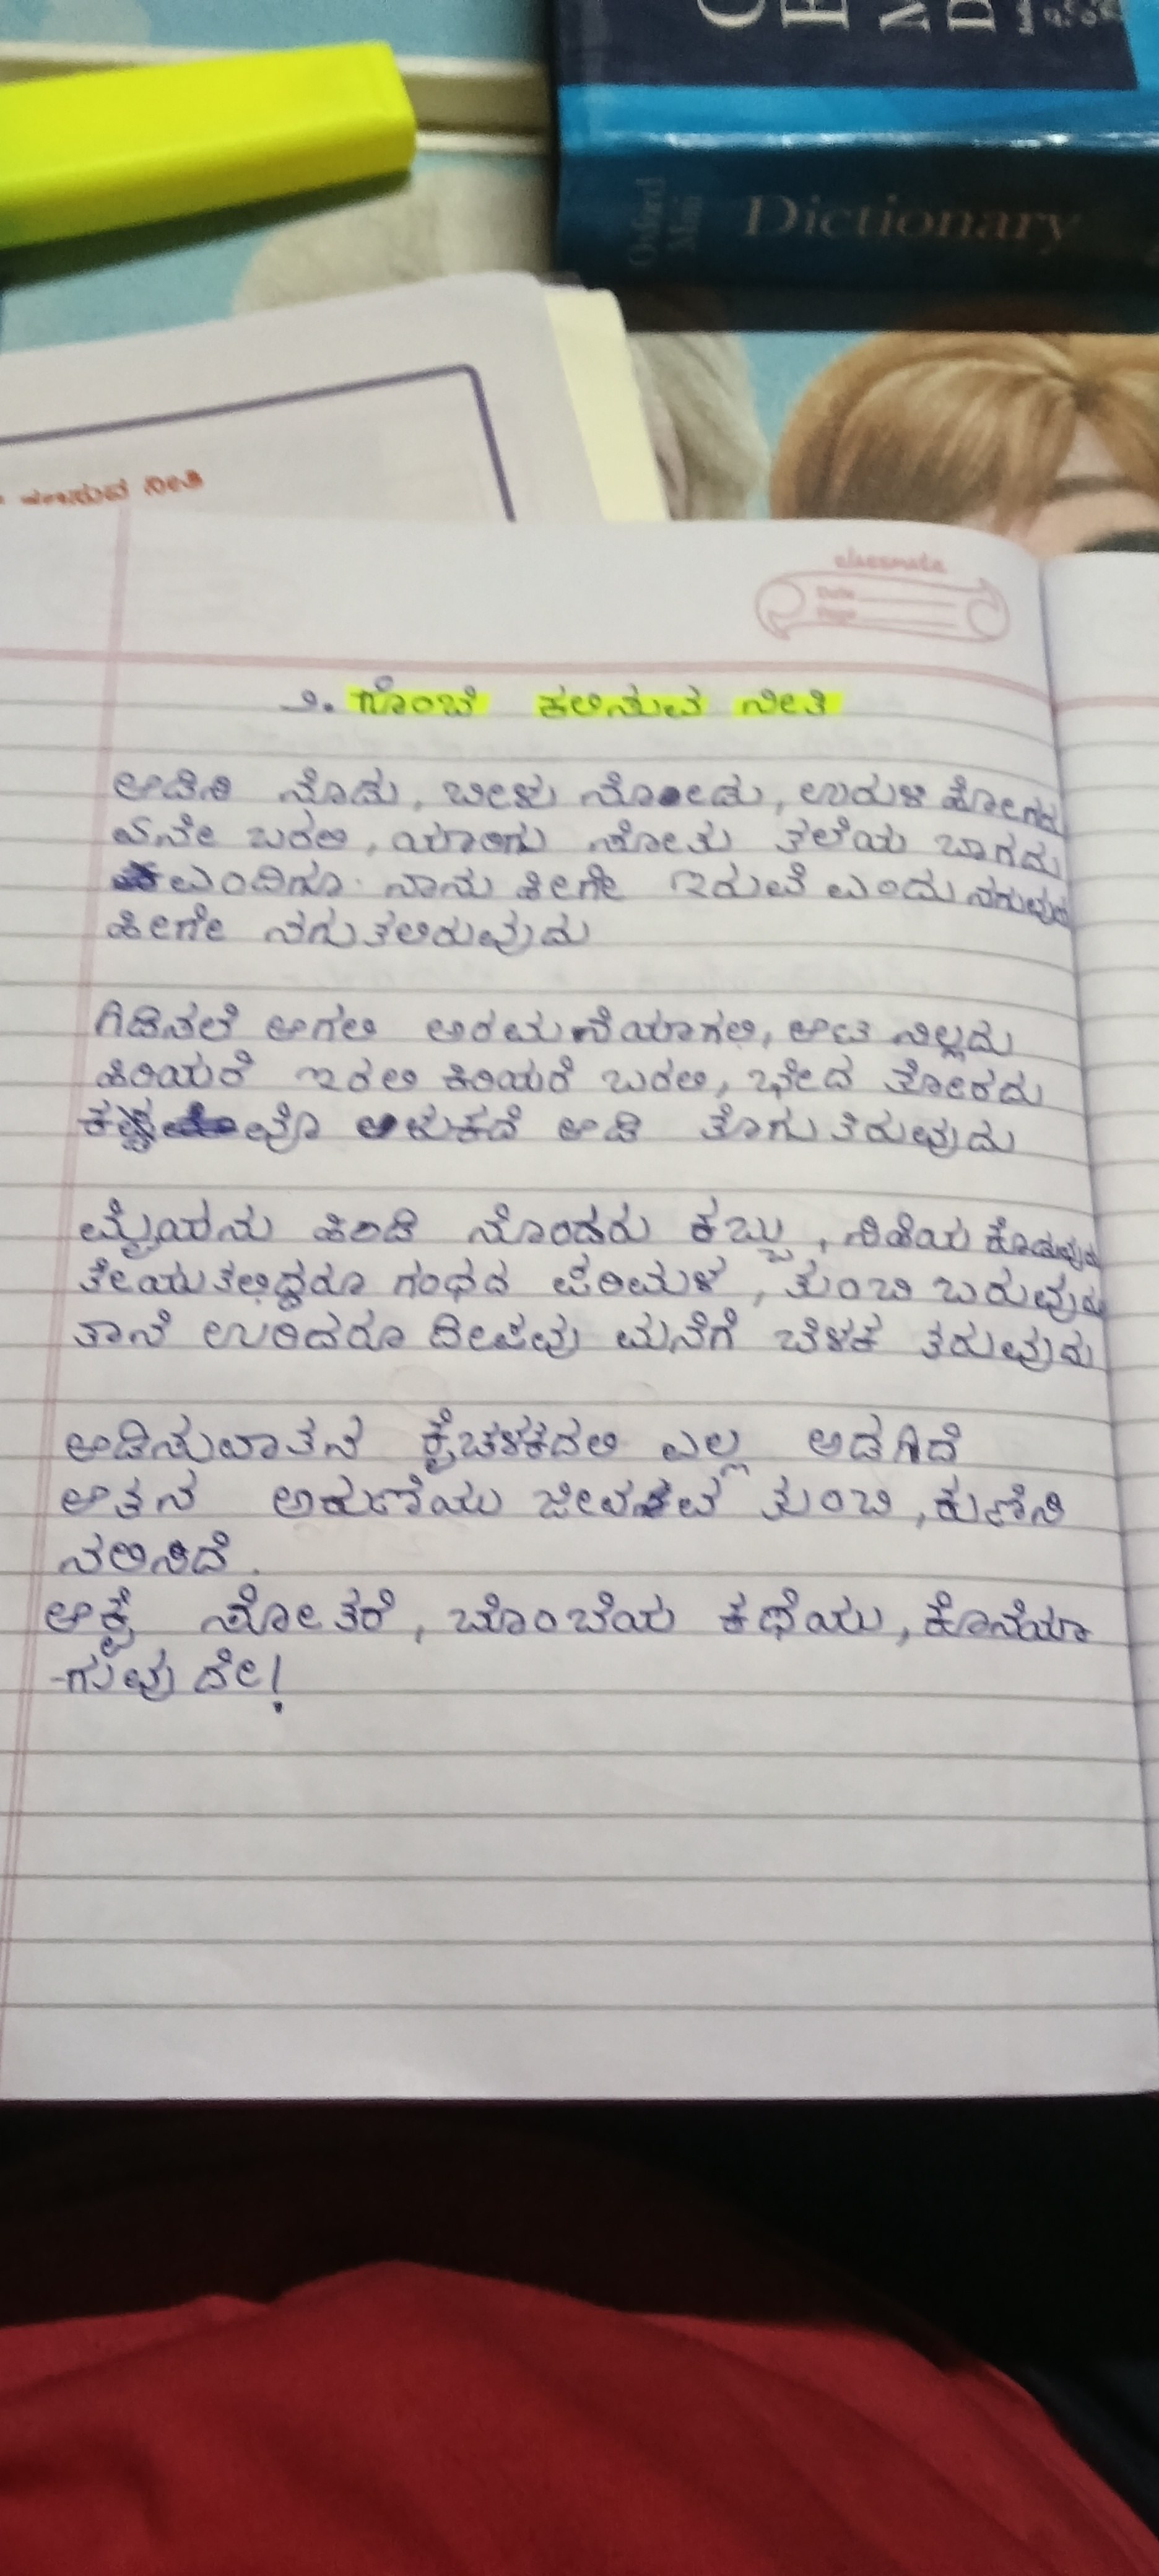 Oxford
Mini
Dictionary
ಕಲಿಸುವ ನೀತಿ
classmate
Date
Page
೨. ಗೊಂಬೆ ಕಲಿಸುವ ನೀತಿ
ಆಡಿಸಿ ನೊಡು, ಬೀಳು ನೋಡು, ಉರುಳಿ ಹೋಗದು
ಏನೇ ಬರಲಿ, ಯಾರಿಗು ಸೋತು ತಲೆಯ ಬಾಗದು
ಎಂದಿಗೂ ನಾನು ಹೀಗೇ ಇರುವೆ ಎಂದು ನಗುವುದು
ಹೀಗೇ ನಗುತಲಿರುವುದು
ಗಿಡಿಸಲೆ ಆಗಲಿ ಅರಮನೆಯಾಗಲಿ, ಆಟ ನಿಲ್ಲದು
ಹಿರಿಯರೆ ಇರಲಿ ಕಿರಿಯರೆ ಬರಲಿ, ಭೇದ ತೋರದು
ಅಳುಕದೆ ಆಡಿ ತೊಗುತಿರುವುದು
ಮೈಯನು ಹಿಂಡಿ ನೊಂದರು ಕಬ್ಬು, ಸಿಹಿಯ ಕೊಡುವುದು
ತೇಯುತಲಿದ್ದರೂ ಗಂಧದ ಪರಿಮಳ, ತುಂಬಿ ಬರುವುದು
ತಾನೆ ಉರಿದರೂ ದೀಪವು ಮನೆಗೆ ಬೆಳಕ ತರುವುದು
ಆಡಿಸುವಾತನ ಕೈಚಳಕದಲಿ ಎಲ್ಲ ಅಡಗಿದೆ
ಆತನ ಅರುಣೆಯು ಜೀವವ ತುಂಬಿ, ಕುಣಿಸಿ
ನಲಿಸಿದೆ.
ಆ ಕೈ ಸೋತರೆ, ಬೊಂಬೆಯ ಕಥೆಯು, ಕೊನೆಯಾ
-ಗುವುದೇ!